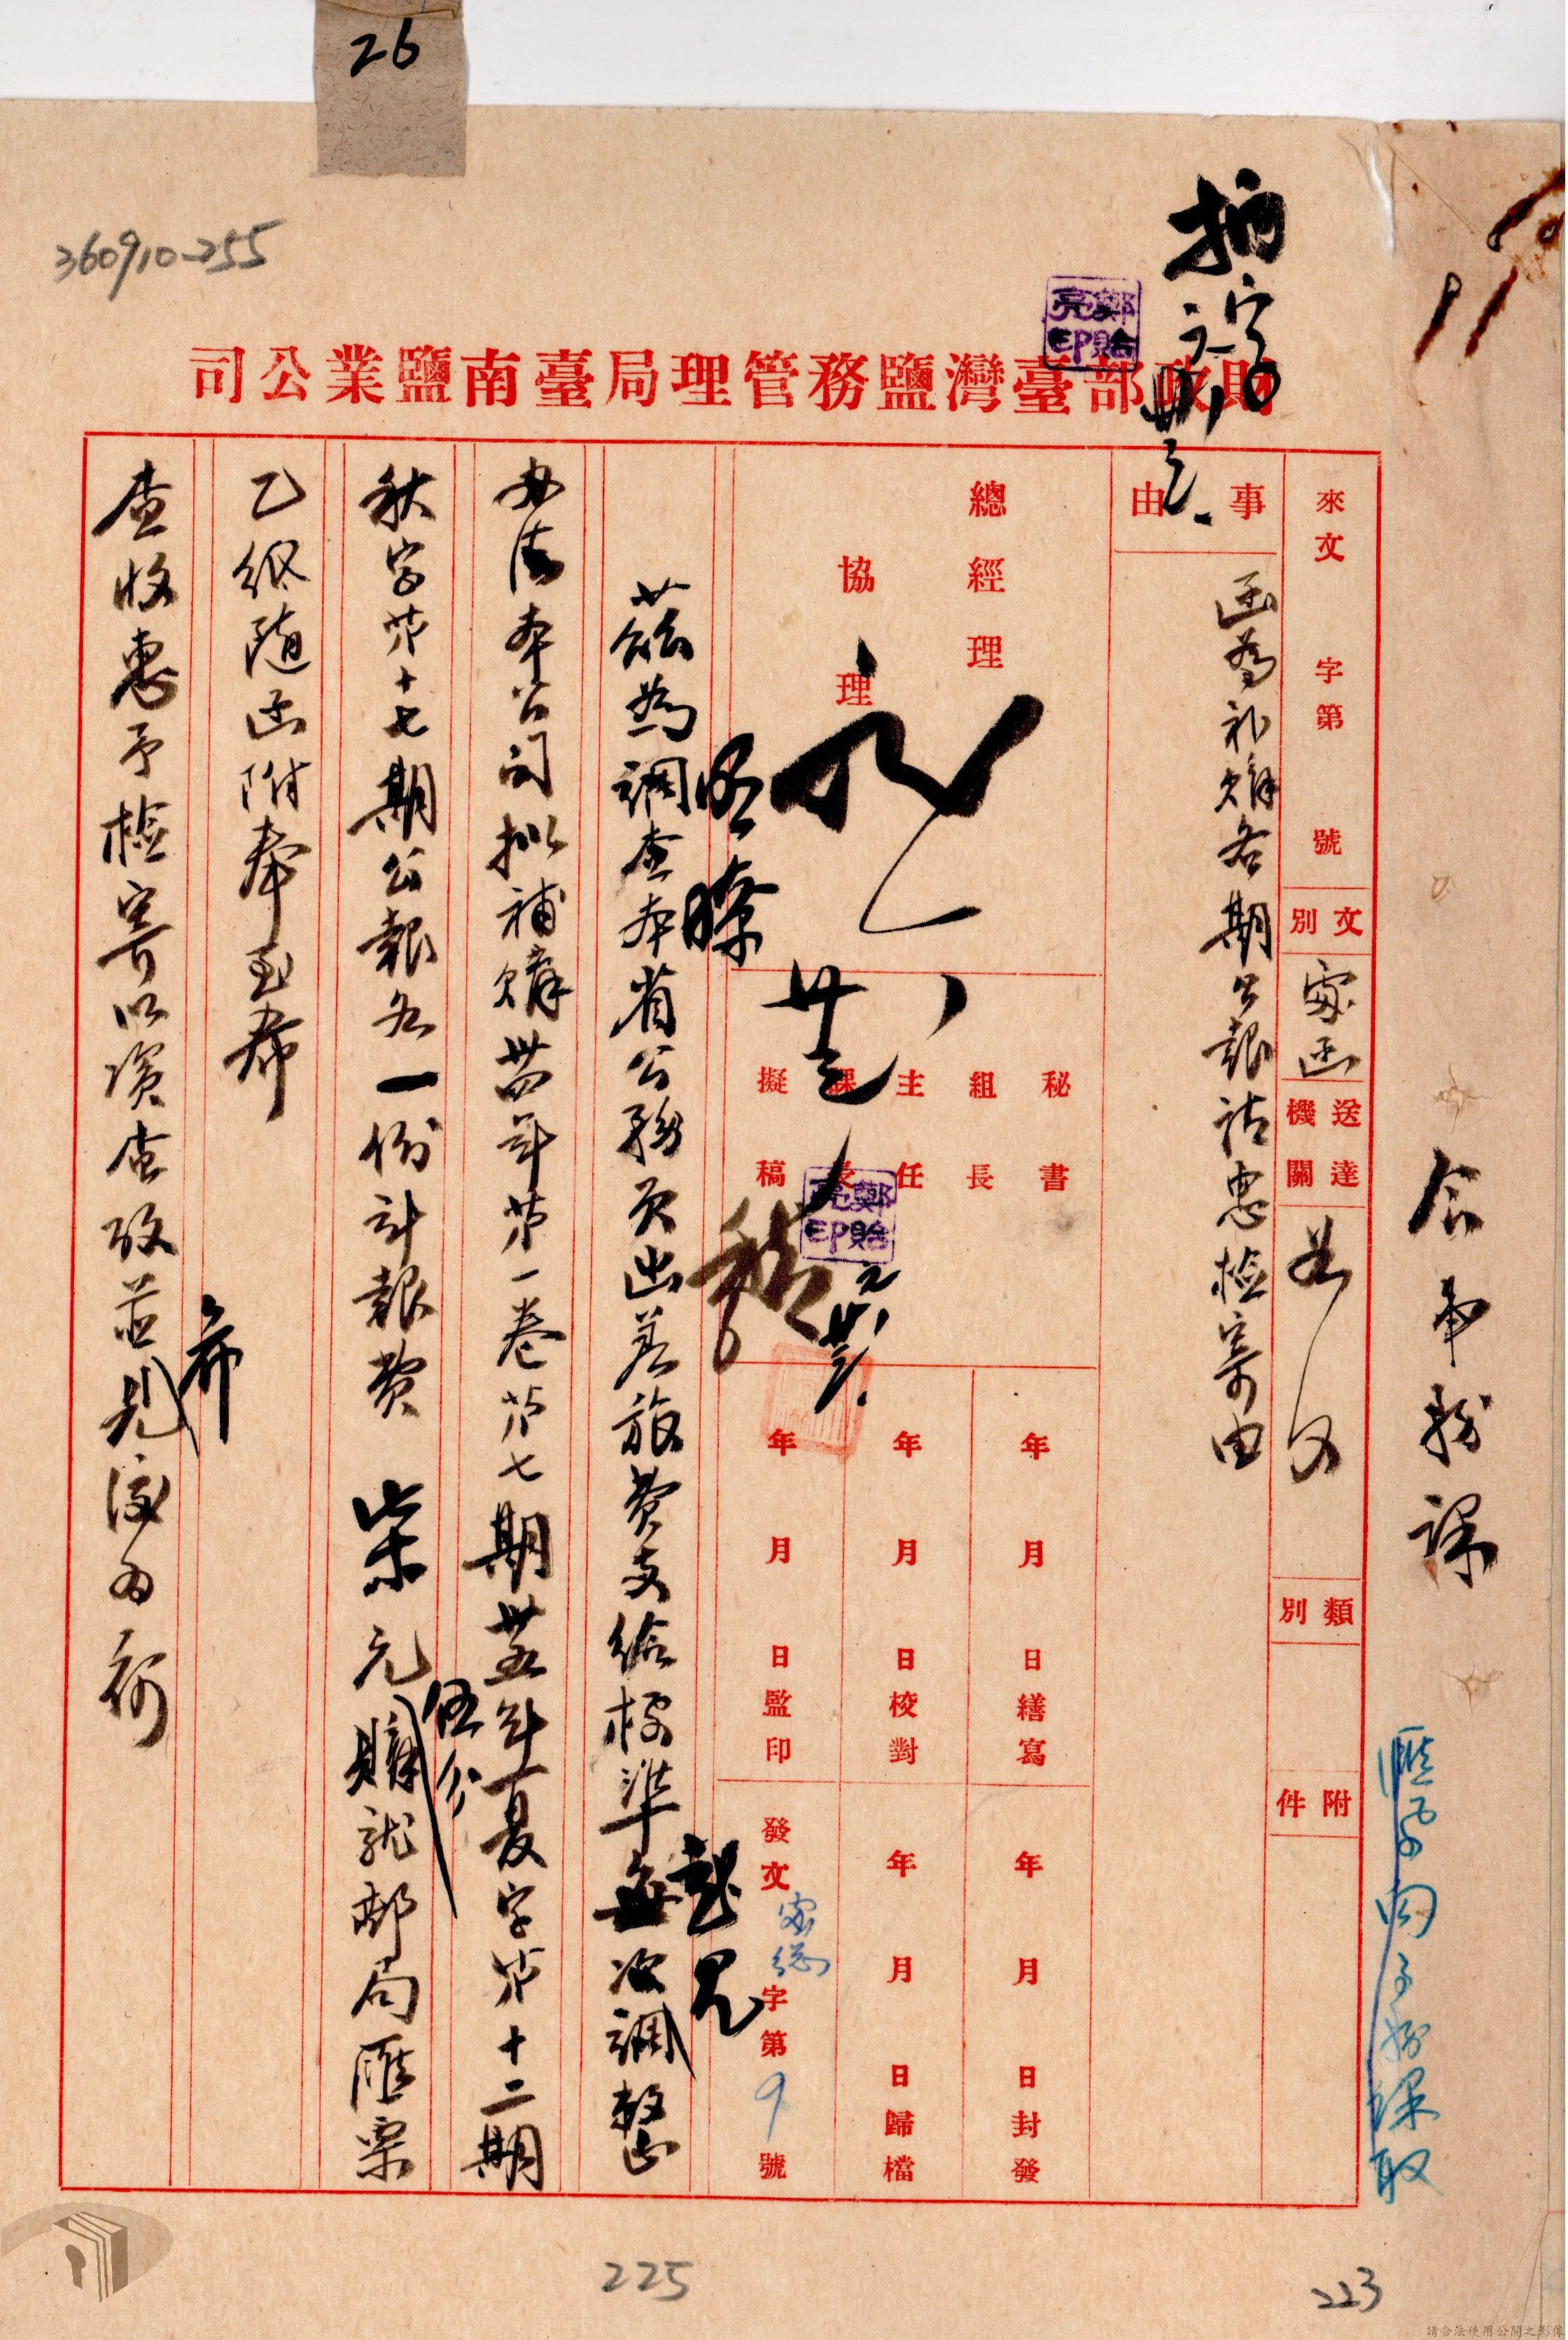 26
360910-255
財政部臺灣鹽務管理局臺南鹽業公司
鄭貽亮印
會事務課
匯票向事務課取
來文 字第 號
文別 家函
送達機關
類別
附件
事由
函為補購各期公報請惠檢寄由
總經理
協理
秘書
組長
主任
課長
擬稿
鄭貽亮印
年 月 日繕寫
年 月 日校對
年 月 日監印
年 月 日封發
年 月 日歸檔
發文 字第9號
茲為調查本省公務員出差旅費支給標準每次調整
起見
辦法本公司擬補購卅四年第一卷第七期卅五年夏字第十二期
秋字第十七期公報各一份計報費柒元
伍分
購就郵局匯票
乙紙隨函附奉至希
查收惠予檢寄以資查攷並
希
見復為荷
225
223
請合法使用公開之影像